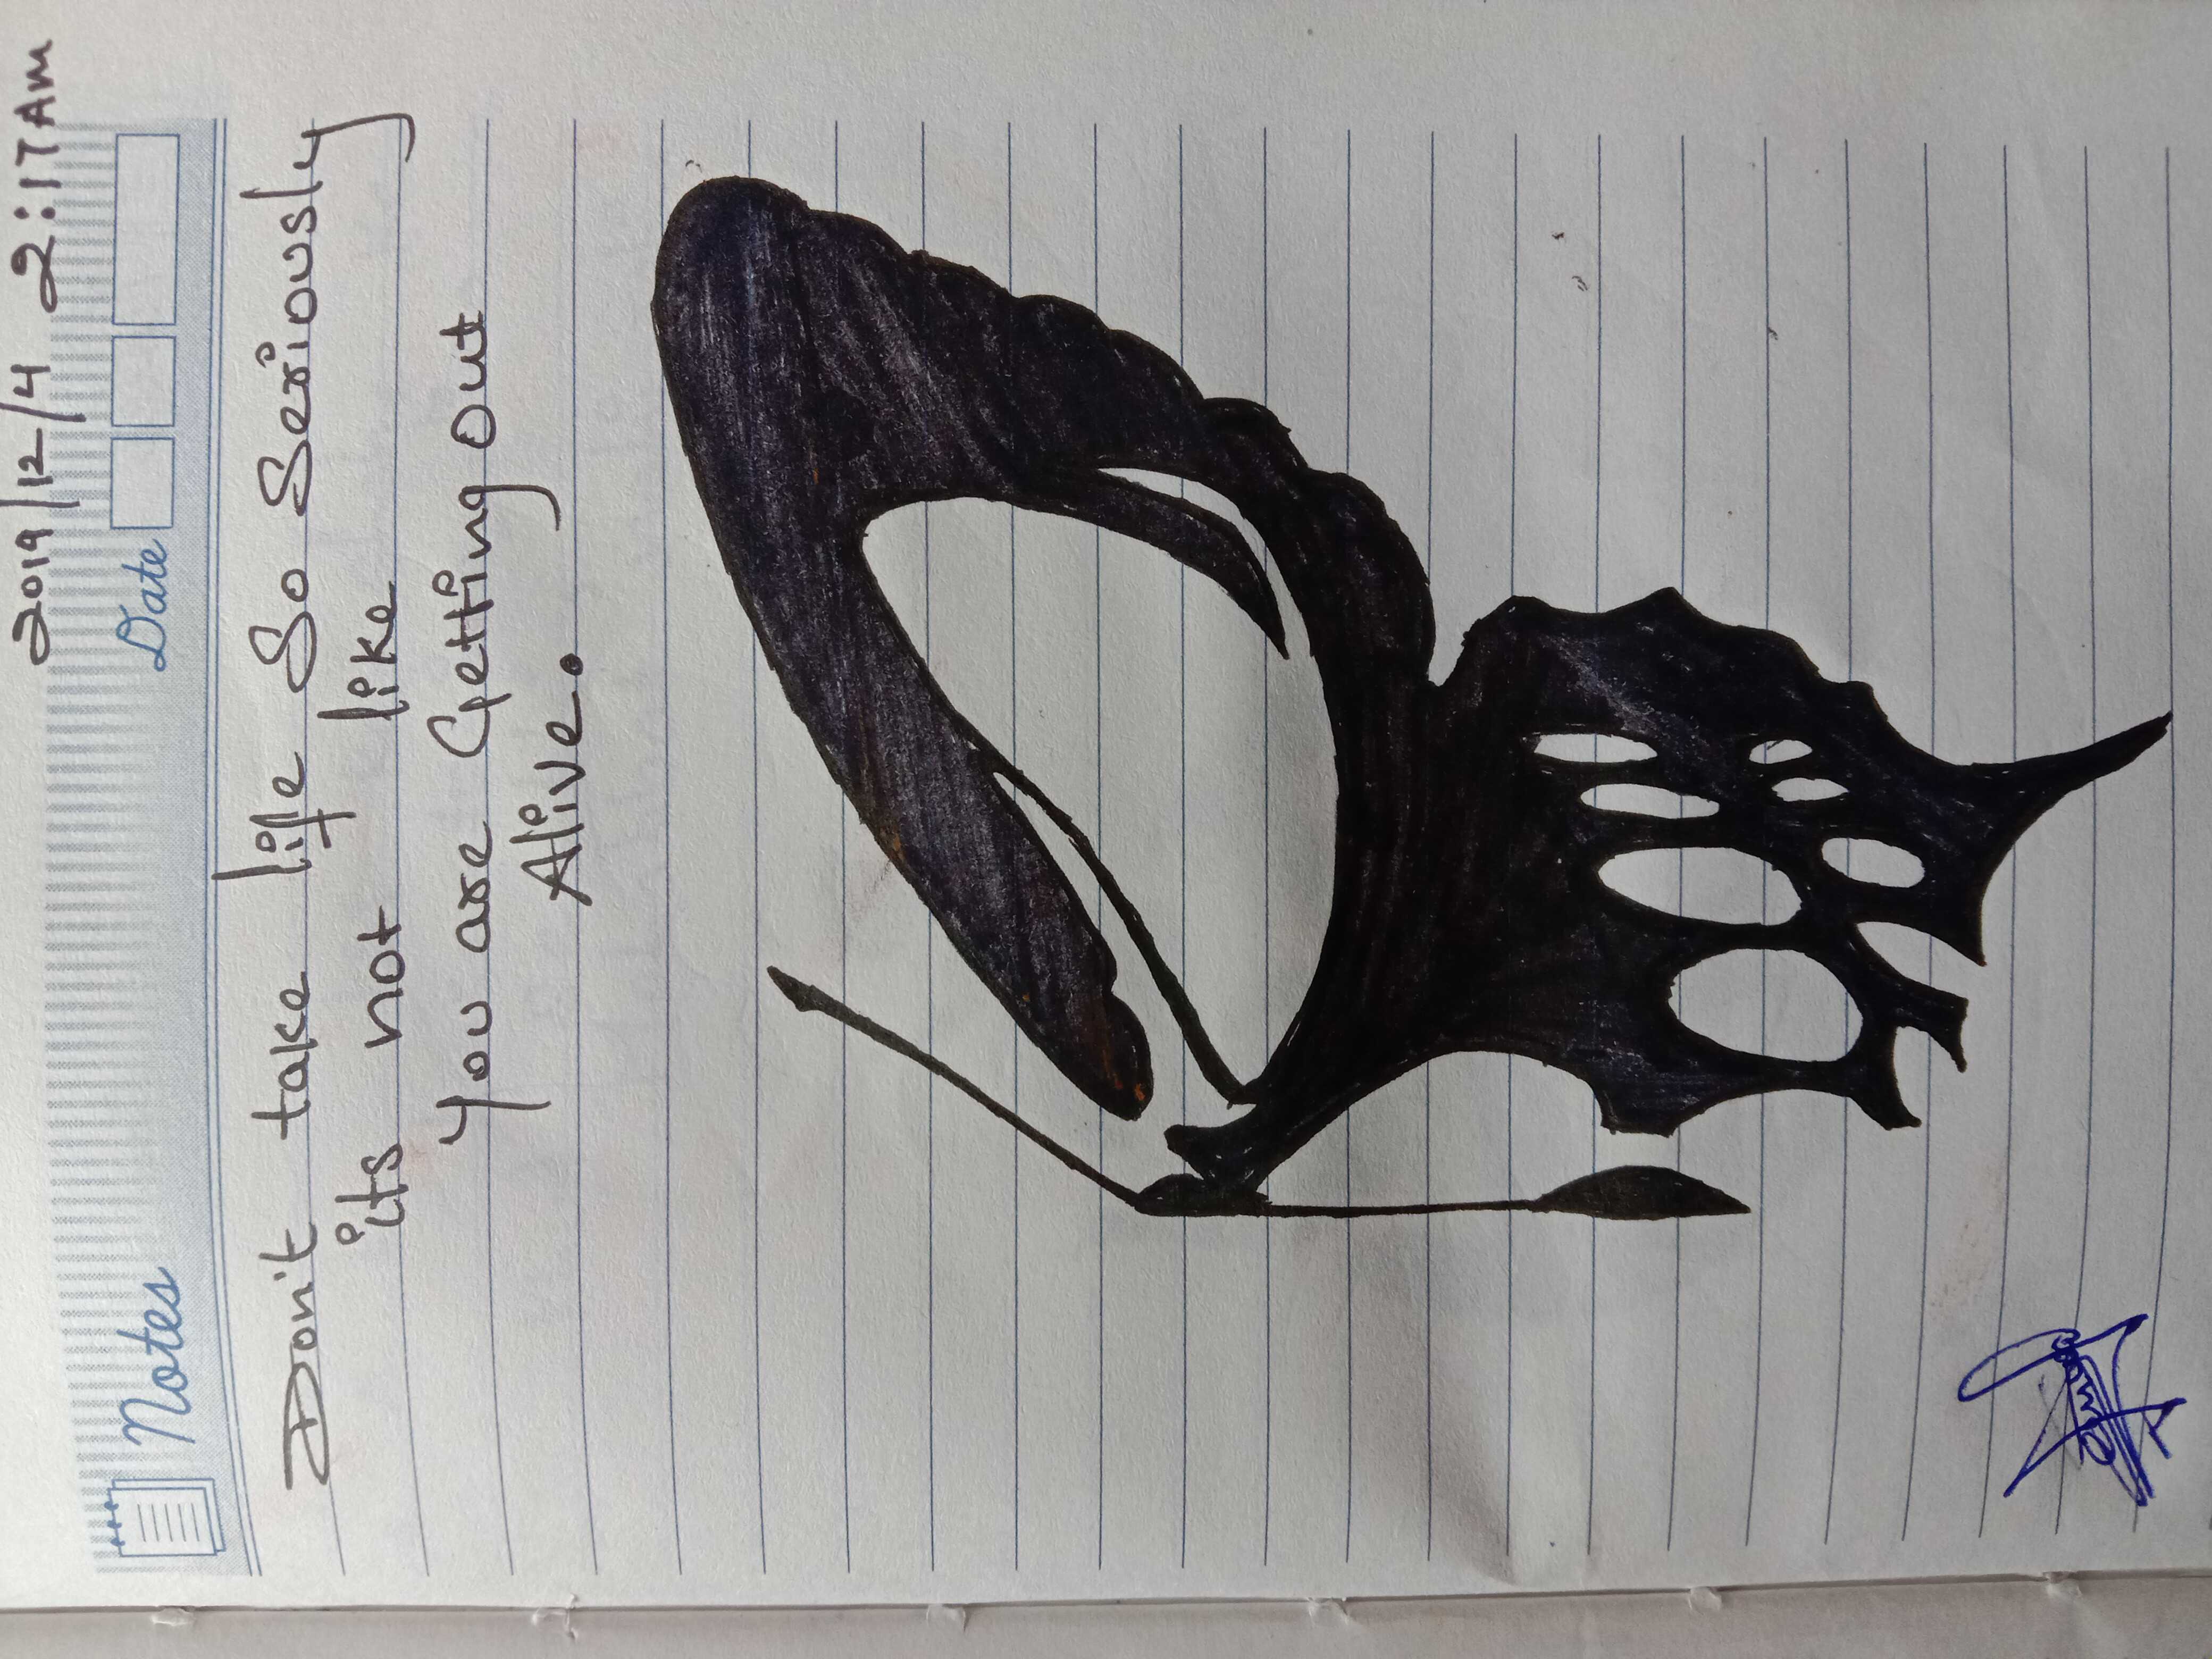 2019/12/4 2:17 Am
Notes Date
Don't take life So Seriously
its not like
You are Getting out
Alive.